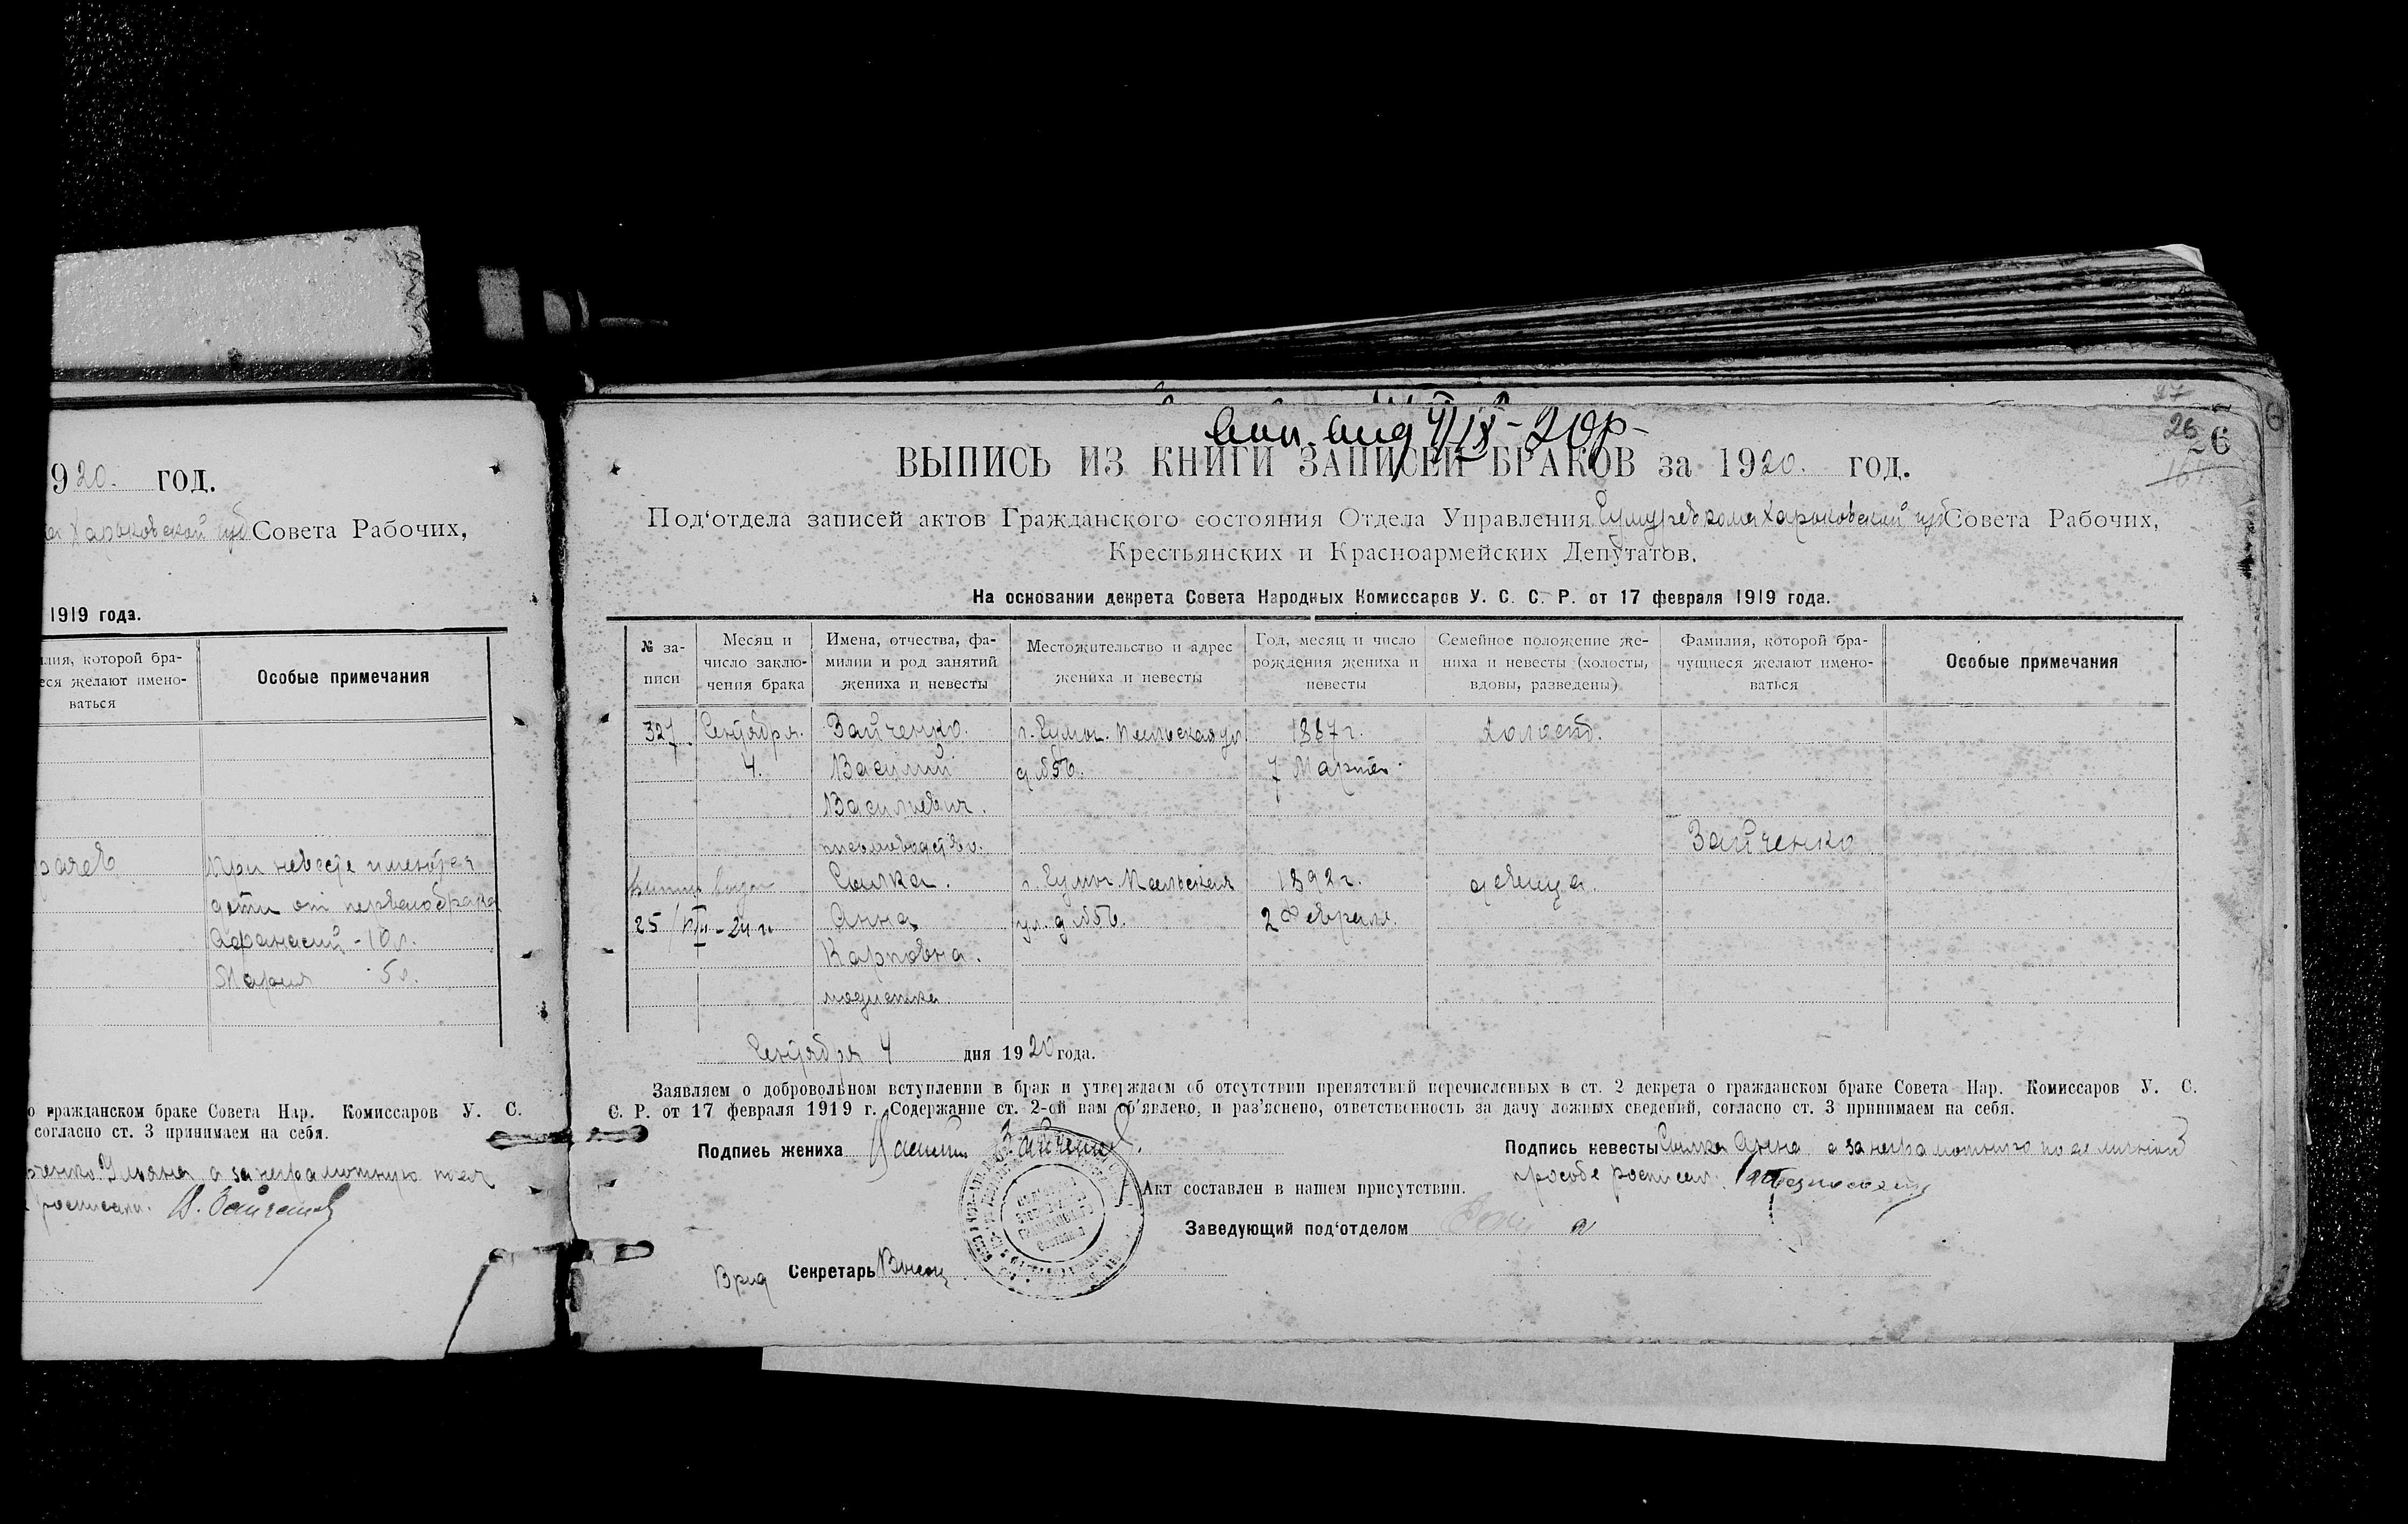 920. год.
Харьковской губ Совета Рабочих,
1919 года.
лия, которой бра-
еся желают имено-
ваться
Особые примечания
При невесте имеются
дети от первого брака
Афанасий - 10 л.
Мария 5 л.
о гражданском браке Совета Нар. Комиссаров У. С.
согласно ст. 3 принимаем на себя.
Ульяна а за неграмотную по ея
росписал. В. Зайченко
коп. выд 4/IX-20 р-
27
26
26
ВЫПИСЬ ИЗ КНИГИ ЗАПИСЕЙ БРАКОВ за 1920. год.
Под‘отдела записей актов Гражданского состояния Отдела Управления Сумуревкома Харьковской губ Совета Рабочих,
Крестьянских и Красноармейских Депутатов.
На основании декрета Совета Народных Комиссаров У. С. С. Р. от 17 февраля 1919 года.
№ за-
писи
Месяц и
число заклю-
чения брака
Имена, отчества, фа-
милии и род занятий
жениха и невесты
Местожительство и адрес
жениха и невесты
Год, месяц и число
рождения жениха и
невесты
Семейное положение же-
ниха и невесты (холосты,
вдовы, разведены)
Фамилия, которой бра-
чущиеся желают имено-
ваться
Особые примечания
327. Сентября. Зайченко. г. Сумы. Псельская ул 1887 г. холост.
4. Василий д №56. 7 Марта.
Васильевич.
письмоводство. Зайченко
Сылка. г. Сумы. Псельская 1892 г. девица.
25/VII-24 г. Анна ул. д №56. 2 Февраля.
Карповна.
модистка.
Сентября 4 дня 1920 года.
Заявляем о добровольном вступлении в брак и утверждаем об отсутствии препятствий перечисленных в ст. 2 декрета о гражданском браке Совета Нар. Комиссаров У. С.
С. Р. от 17 февраля 1919 г. Содержание ст. 2-ой нам об‘явлено, и раз‘яснено, ответственность за дачу ложных сведений, согласно ст. 3 принимаем на себя.
Подпись жениха Василий Зайченко. Подпись невесты Сылка Анна а за неграмотную по ее личной
просьбе росписал
Акт составлен в нашем присутствии.
Заведующий под‘отделом
Врид Секретарь